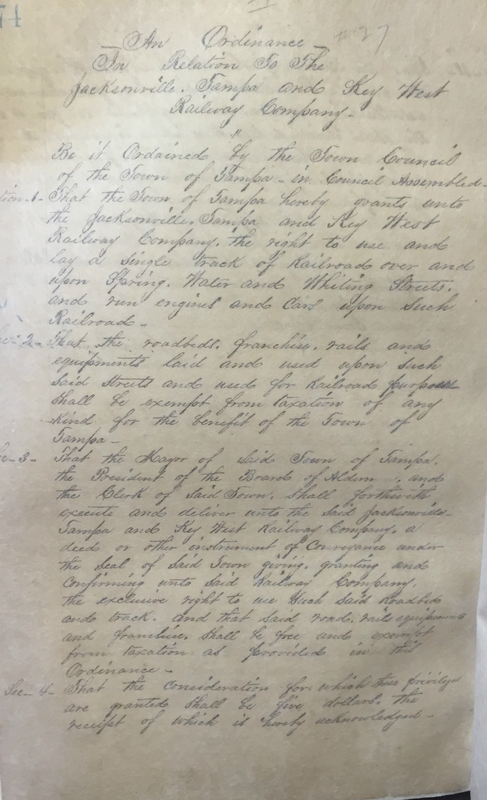 74
#37
An Ordinance
In Relation To The
Jacksonville, Tampa and Key West
Railway Company-
"
Be it Ordained by the Town Council
of the Town of Tampa- in Council Assembled-
tion-1- That the Town of Tampa hereby grants unto
the Jacksonville, Tampa and Key West
Railway Company, the right to use and
lay a single track of Railroad over and
upon Spring, Water and Whiting Streets,
and run engines and Cars upon such
Railroad-
2- That the roadbeds, franchise, rails and
equipments laid and used upon such
Said Streets and used for Railroad purposes
shall be exempt from taxation of any
kind for the benefit of the Town of
Tampa-
3- That the Mayor of said Town of Tampa,
the President of the Board of Aldem and
the Clerk of Said Town, Shall forthwith
execute and deliver unto the said Jacksonville
Tampa and Key West Railway Company, a
deed or other instrument of Conveyance under
the Seal of Said Town giving, granting and
Confirming unto Said Railway Company,
the exclusive right to use Such Said Roadbeds
and track. And that Said road, rails equipments
and franchise, Shall be free and exempt
from taxation as provided in this
Ordinance-
Sec-4- That the Consideration for which these privileges
are granted Shall be five dollars, the
receipt of which is hereby acknowledged-